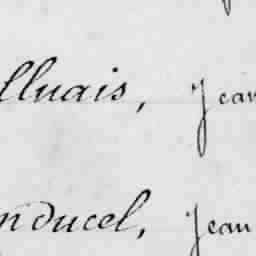 lluais, Jean
nducel, Jean